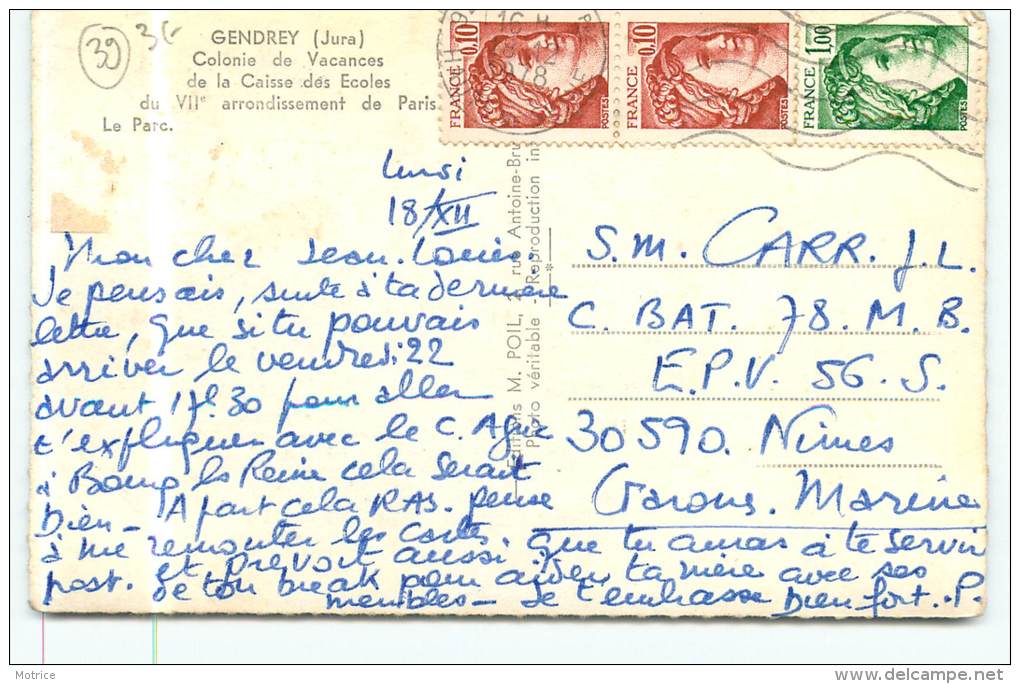 39
36
GENDREY (Jura)
Colonie de Vacances
de la Caisse des Ecoles
du VIIe arrondissement de Paris.
Le Parc.
0,10
FRANCE
POSTES
0,10
FRANCE
POSTES
1,00
FRANCE
POSTES
16 H
1978
Editions M. POIL, rue Antoine-Bru
Photo véritable - Reproduction in
lundi
18/XII
Mon cher Jean-Louis.
Je pensais, suite à ta dernière
lettre, que si tu pouvais
arriver le vendredi 22
avant 17h30 pour aller
t'expliquer avec le C. Agric
à Bourg la Reine cela serait
bien - A part cela RAS. pense
à me remonter les cartes. que tu auras à te servir
et prévoit aussi
post. de ton break pour aider ta mère avec ses
meubles - Je t'embrasse bien fort. P.
S.M. CARR. J.L.
C. BAT. 78. M. B.
E.P.V. 56. S.
30590. Nimes
Garons. Marine
Motrice
delcampe.net